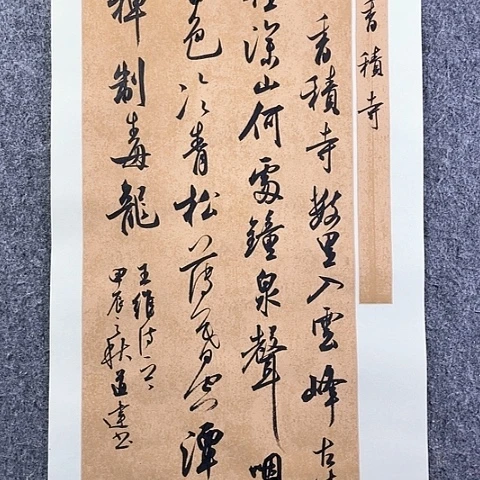 香積寺
香積寺數里入雲峰古
徑深山何處鐘泉聲咽
日色冷青松薄暮空潭
禪制毒龍
王維詩一首
甲辰之秋道建書